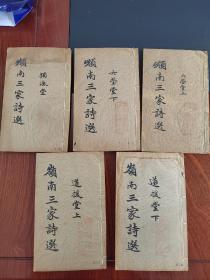 嶺南三家詩選
獨漉堂
嶺南三家詩選
六瑩堂下
嶺南三家詩選
六瑩堂上
嶺南三家詩選
道援堂上
嶺南三家詩選
道援堂下